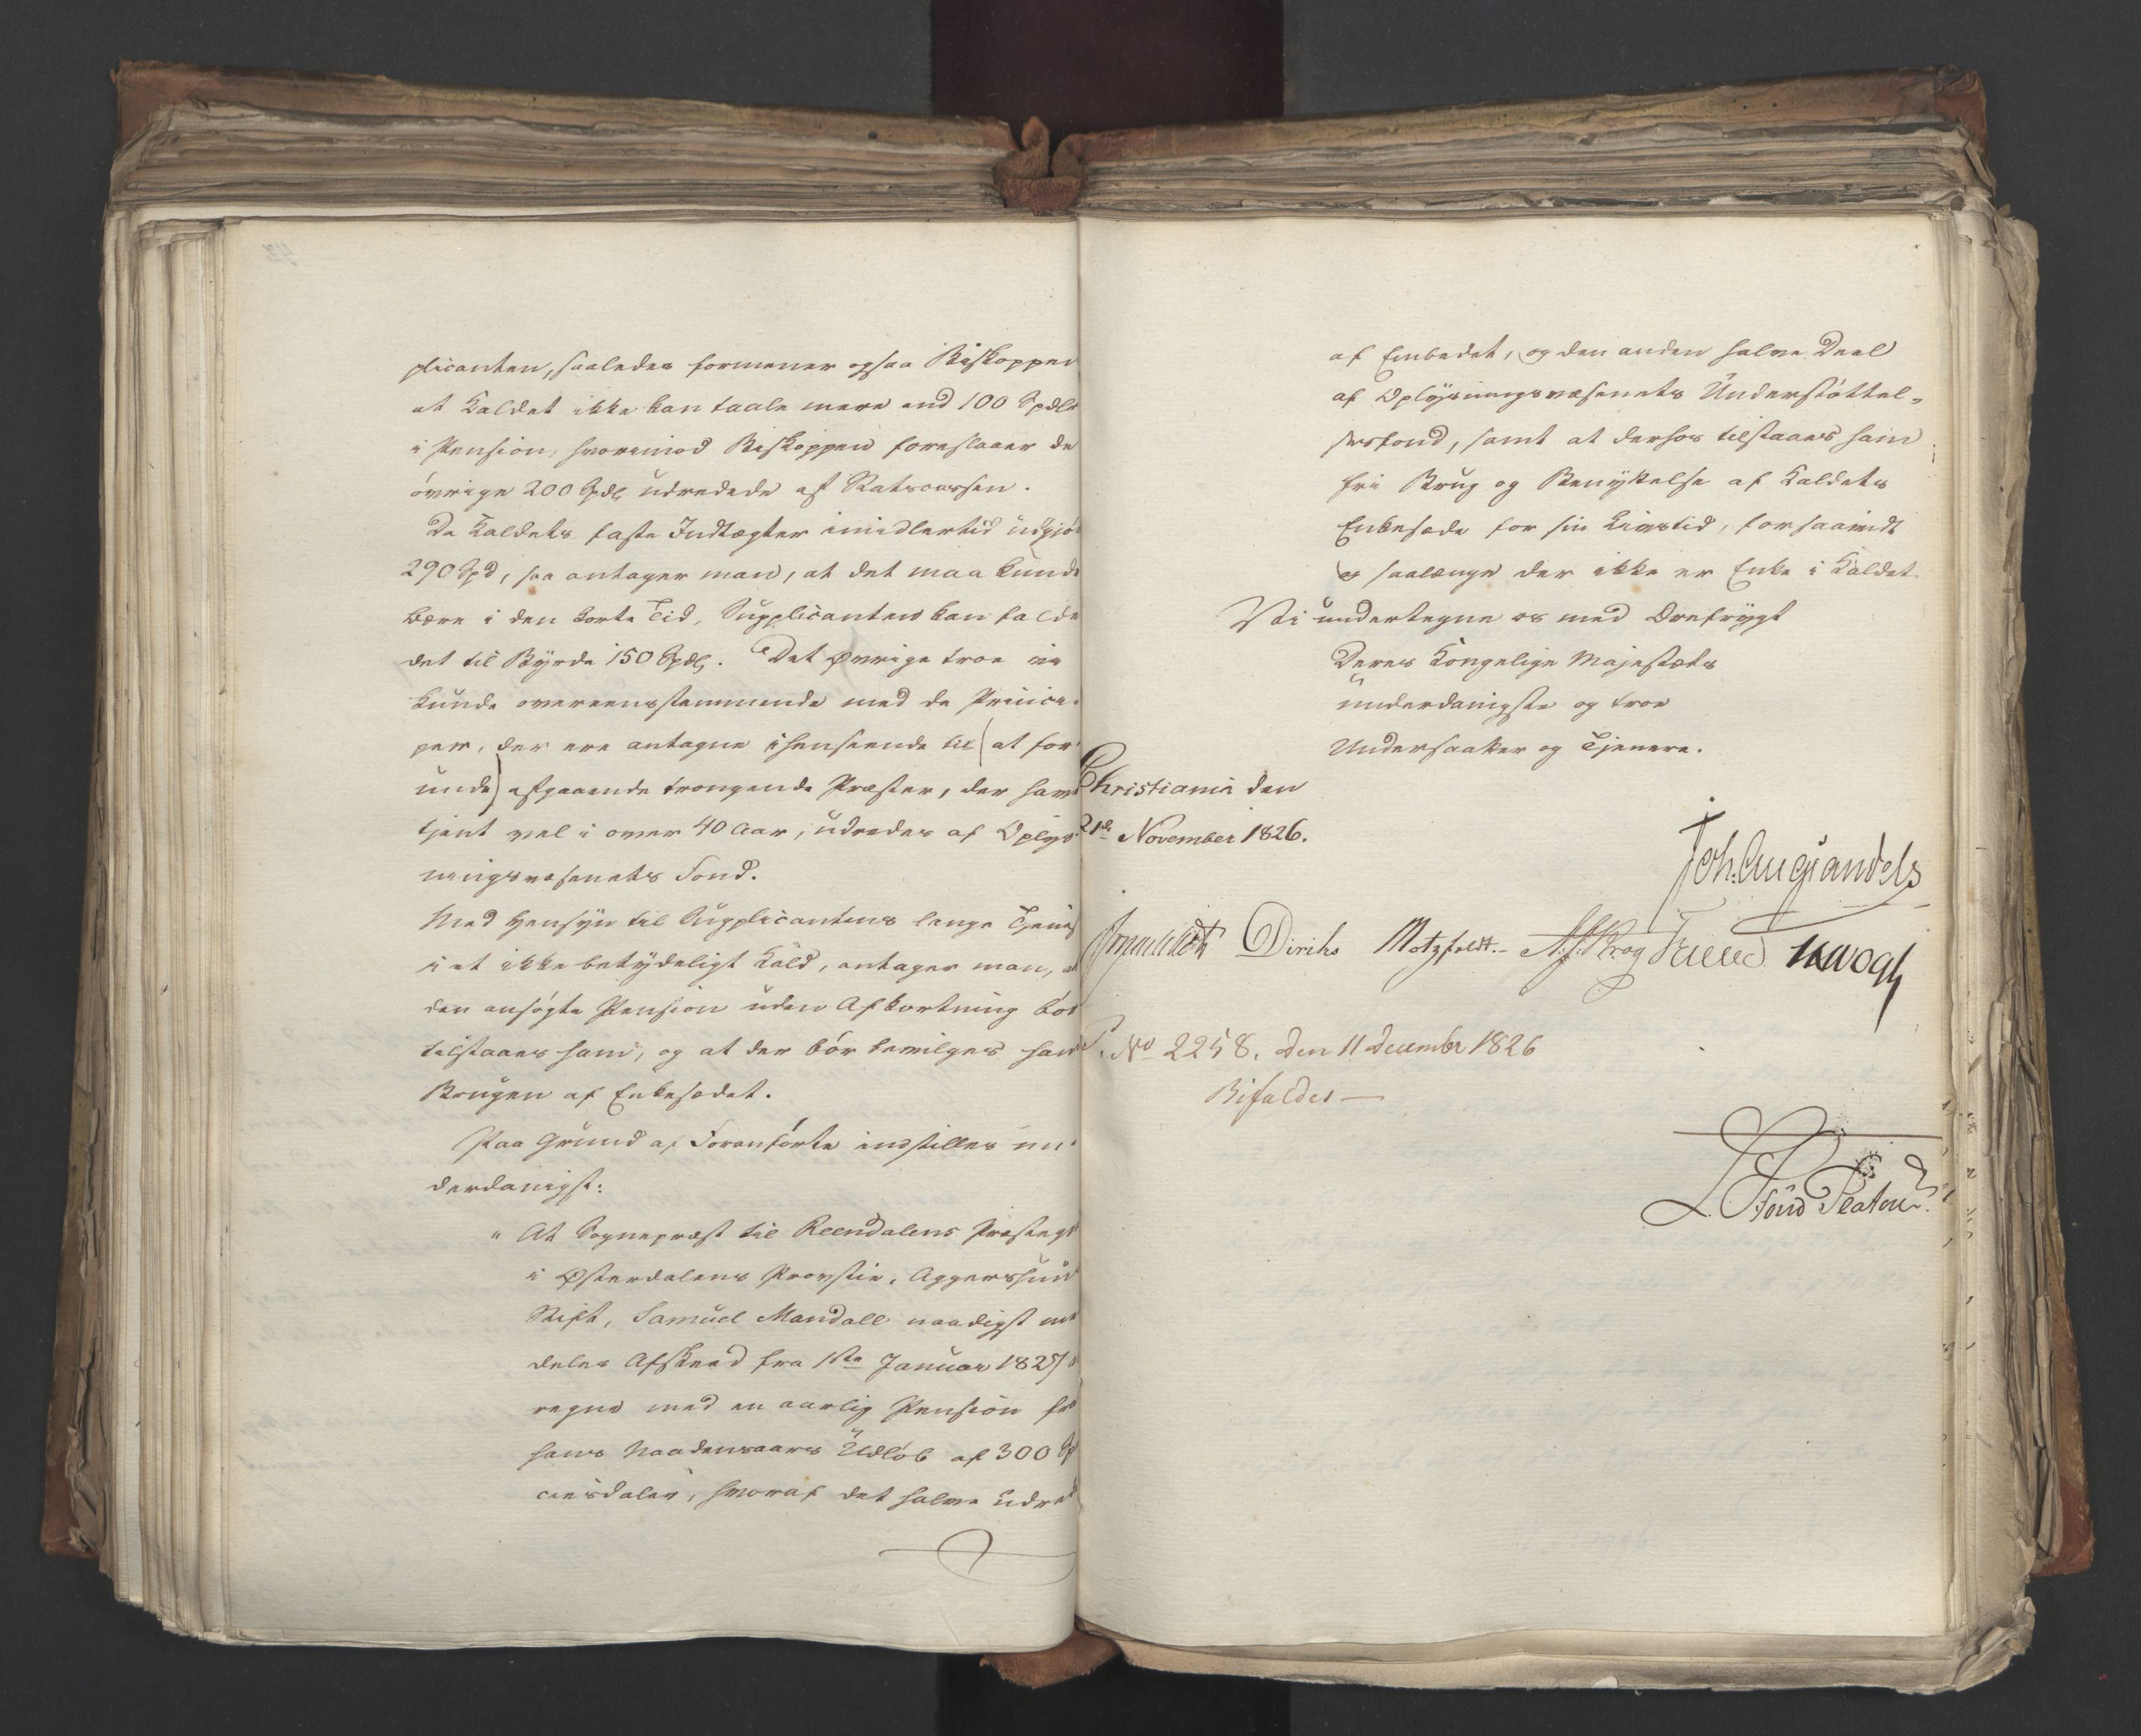 plicanten, saaledes formener ogsaa Biskoppen
at Kaldet ikke kan taale mere end 100 Spdlr
i Pension, hvorimod Biskoppen foreslaaer de
övrige 200 Spdlr udredede af Statscassen.
Da Kaldets faste Indtægter imidlertid udgjör
290 Spd, saa antager man, at det maa kunde
bære i den korte Tid, Supplicanten kan falde
det til Byrde 150 Spdlr. Det Øvrige troe vi
kunde overeensstemmende med de Princi-
per, der ere antagne i henseende til (at for-
unde) afgaaende trængende Præster, der have
tjent vel i over 40 Aar, udredes af Oplys-
ningsvæsenets Fond.
Med Hensyn til Supplicantens lange Tjenes
i et ikke betydeligt Kald, antager man, at
den ansøgte Pension uden Afkortning bör
tilstaaes ham, og at der bör bevilges ham
Brugen af Enkesædet.
Paa Grund af Foranförte indstilles un-
derdanigst:
" At Sognepræst til Reendalens Præstegd
i Østerdalens Provstie, Aggershuus
Stift, Samuel Mandall naadigst med
deles Afskeed fra 1ste Januar 1827 a
regne med en aarlig Pension fra
hans Naadensaars Udlöb af 300 Spe
ciesdaler, hvoraf det halve udredes
af Embedet, og den anden halve Deel
af Oplysningsvæsenets Understöttel-
sesfond, samt at derhos tilstaaes ham
fri Brug og Benyttelse af Kaldets
Enkesæde for sin Livstid, forsaavidt
og saalænge der ikke er Enke i Kaldet.
Vi undertegne os med Ærefrygt
Deres Kongelige Majestæts
underdanigste og troe
Undersaatter og Tjenere.
Christiania den
21de November 1826.
Joh. Aug Sandels
Diriks Motzfeldt. Krog JHVogt
No 2258. Den 11 December 1826
Bifaldes